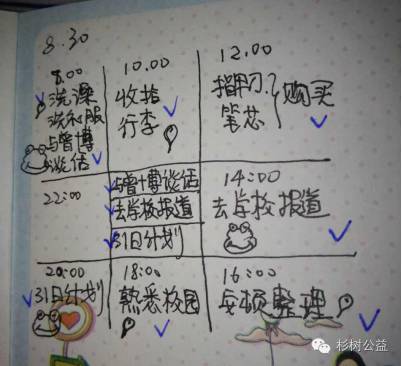 8.30
8.00
洗澡
洗衣服
与曾博
谈话
10.00
收拾
行李
12.00
指甲刀
笔芯
购买
22:00
与曾博谈话
去学校报道
31日计划
14:00
去学校报道
20:00
31日计划
18:00
熟悉校园
16:00
安顿整理
杉树公益